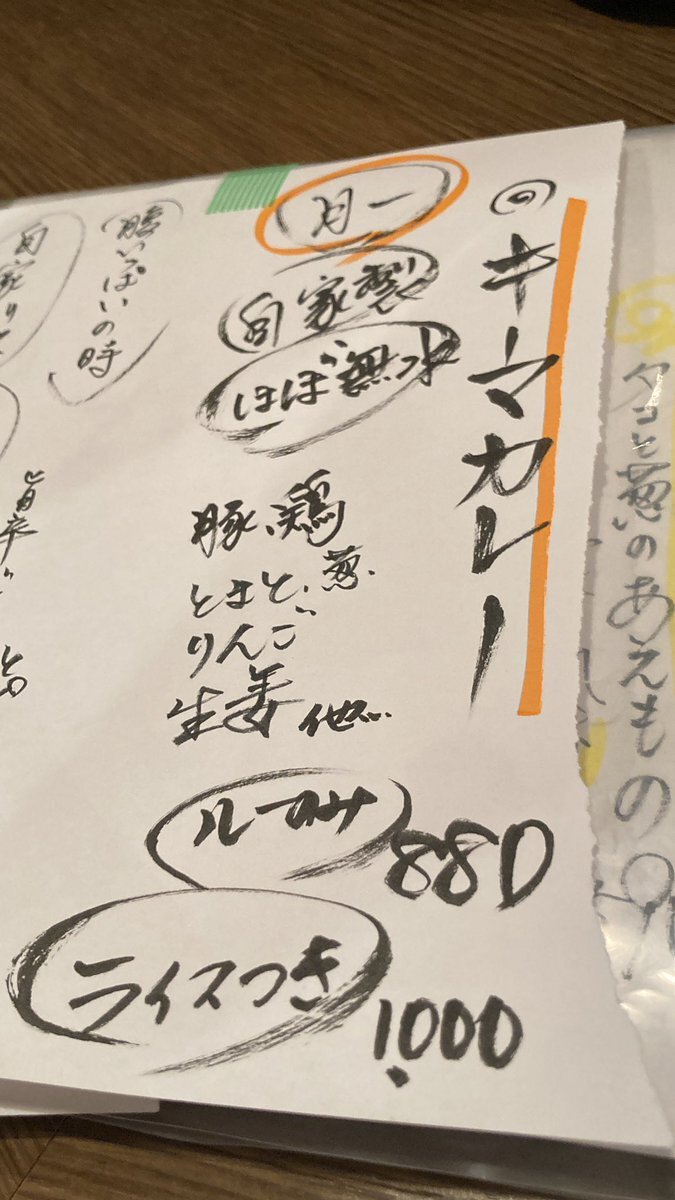 キマカレー
月一
自家製
ほぼ無水
豚、鶏
葱、
とまと、
りんご
生姜 他
ルーのみ
880
ライスつき
1,000
腹いっぱいの時
タコと葱のあえもの
旨辛